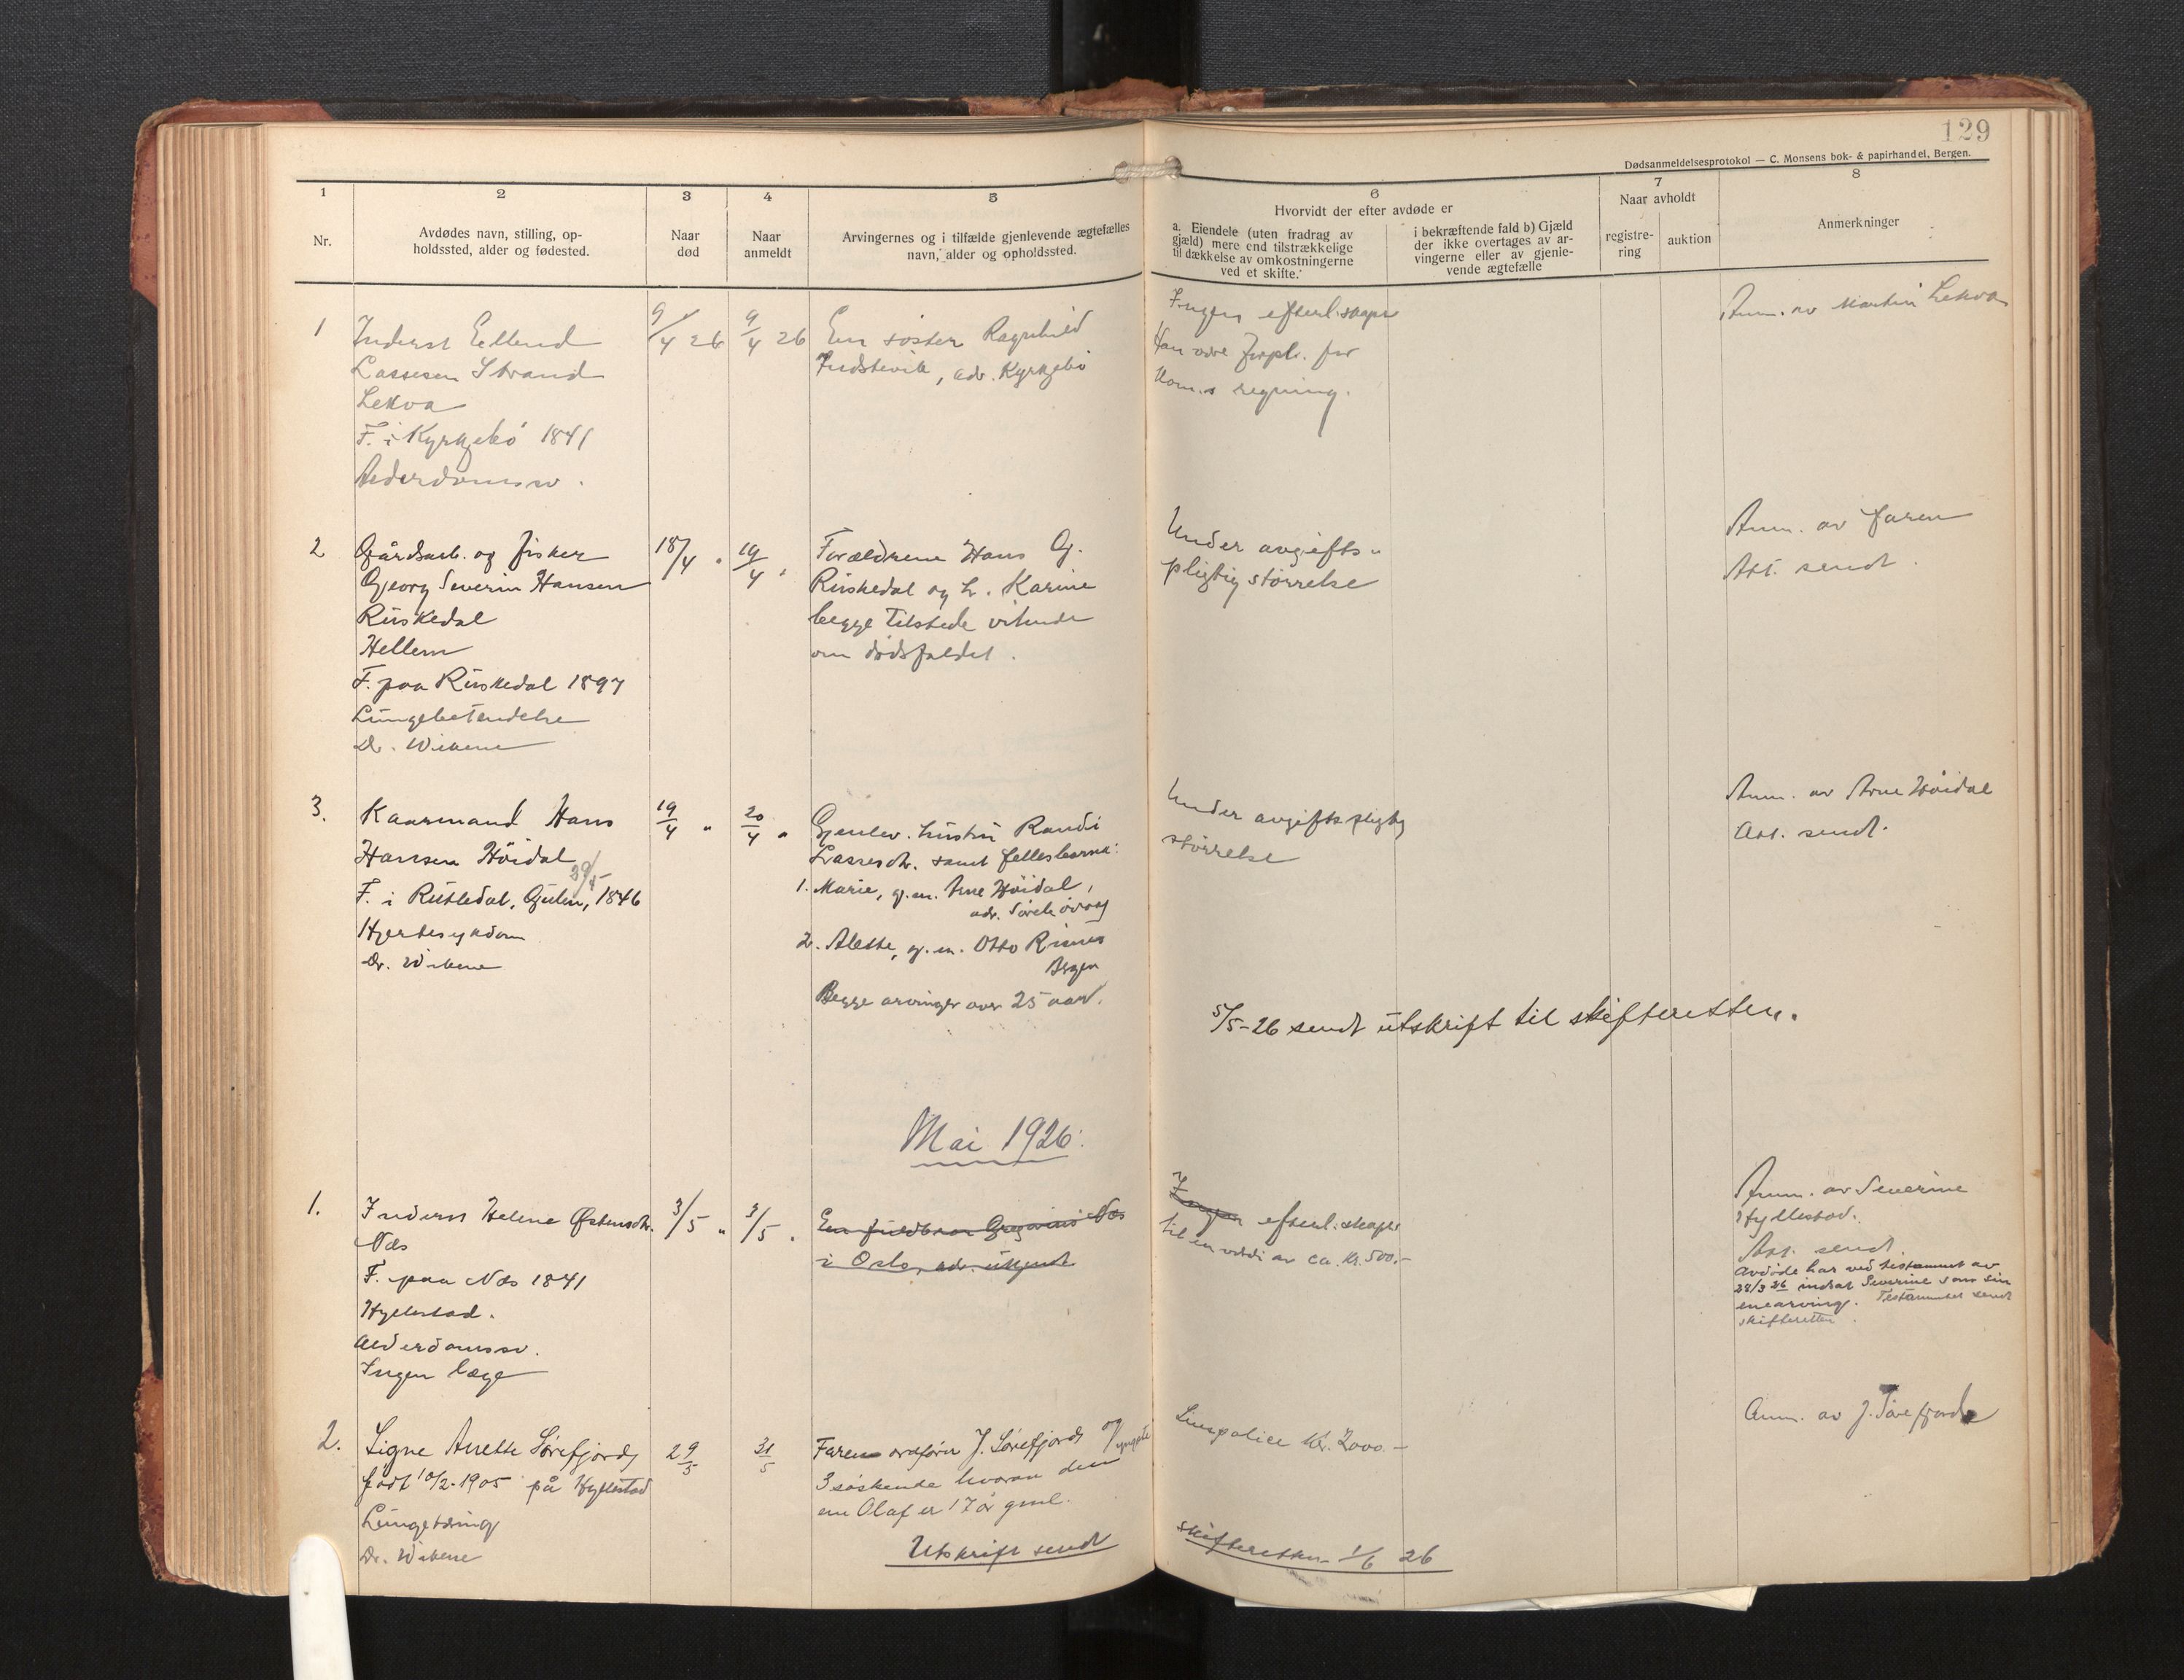 129
Dødsanmeldelsesprotokol — C. Monsens bok- & papirhandel, Bergen.
1
2
3
4
5
6
7
8
Nr.
Avdødes navn, stilling, op-
holdssted, alder og fødested.
Naar
død
Naar
anmeldt
Arvingernes og i tilfælde gjenlevende ægtefælles
navn, alder og opholdssted.
Hvorvidt der efter avdøde er
a. Eiendele (uten fradrag av
gjæld) mere end tilstrækkelige
til dækkelse av omkostningerne
ved et skifte.
i bekræftende fald b) Gjæld
der ikke overtages av ar-
vingerne eller av gjenle-
vende ægtefælle
Naar avholdt
registre-
ring
auktion
Anmerkninger
1
Inderst Ellend
Lassesen Strand
Lekva
F. i Kyrkjebö 1841
Alderdomssv.
9/4 26
9/4 26
En söster Ragnhild
adr. Kyrkjebö
Ingen efterl.skaper
Han var for
kom.s regning.
Anm. av Martin Lekva
2
Gårdsarb. og fisker
Georg Severin Hansen
Risnedal
Hellem
F. paa Risnedal 1897
Lungebetendelse
Dr. Wikene
18/4 "
19/4 "
Forældrene Hans G.
Risnedal og h. Karine
begge tilstede vitende
om dödsfaldet.
Under avgifts-
pligtig störrelse
Anm. av faren
Att. sendt.
3.
Kaarmand Hans
Hansen Höidal
F. i Rutledal, Gulen, 1846
Hjertesykdom
Dr. Wikene
19/4 "
20/4 "
Gjenlev. hustru Randi
Lassesdtr. samt fellesbarna:
1. Marie, g.m. Arne Höidal,
adr.
2. Alette, g.m. Otto Risnes
Bergen
Begge arvinger over 25 aar.
Under avgiftspligtig
störrelse
Anm. av Arne Höidal
Att. sendt.
5/5-26 sendt utskrift til skifteretten.
Mai 1926:
1.
Inderst Helene Østensdtr.
Næs
F. paa Næs 1841
Hyllestad.
Alderdomssv.
Ingen læge
3/5 "
3/5 "
En Gregorius Næs
i Oslo, adr. ukjendt
Ingen efterl.skaper
til en værdi av ca. kr. 500.-
Anm. av Severine
Hyllestad.
Att. sendt.
Avdöde har ved testament av
28/3 26 indsat Severine som sin
enearving. Testamentet sendt
skifteretten.
2.
Signe Anette Sörefjord,
født 10/2-1905 på Hyllestad
Lungetæring
Dr. Wikene
29/5
31/5
Faren ordförer J. Sörefjord og
3 söskende hvorav den yngste
en Olaf er 17 år gml.
Utskrift sendt skifteretten 1/6 26
Livspolice kr. 2000.-
Anm. av J. Sörefjord